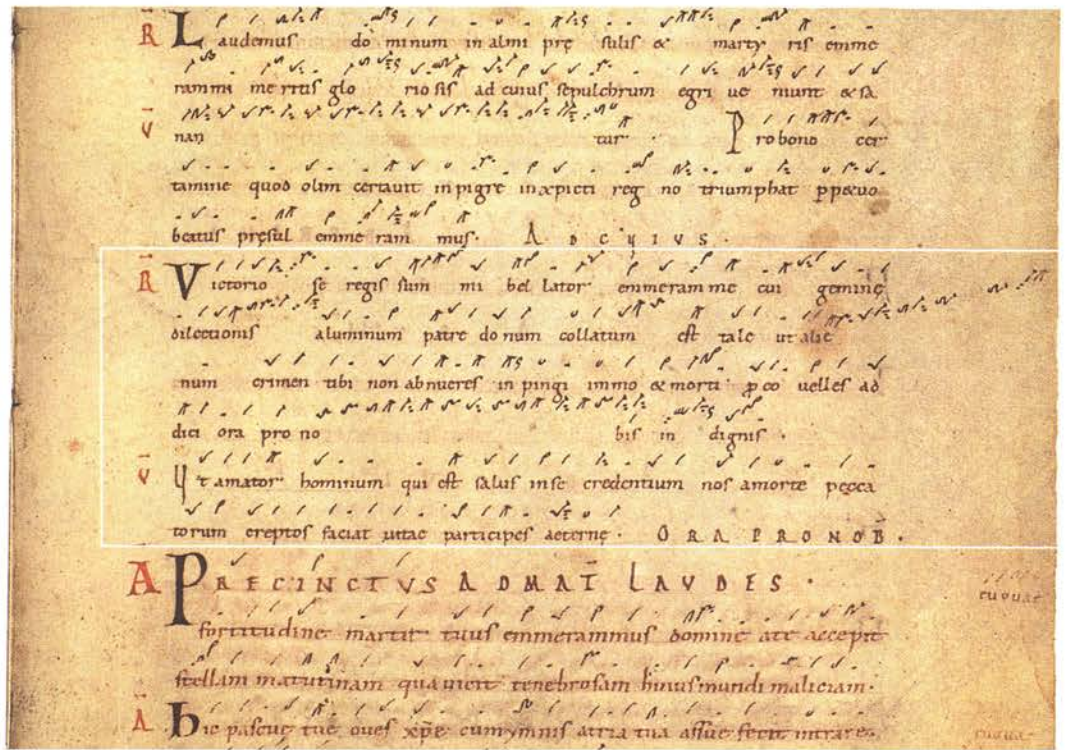 R Laudemus do minum in almi prę sulis & marty ris emme
rammi meritis glo rio sis ad cuius sepulchrum egri ue niunt & sa
nan tur . Pro bono cer
V
tamine quod olim certauit inpigre in xpicti reg no triumphat ppetuo
beatus pręsul emme ram mus. A D C V I V S .
R Victorio se regis sum mi bel lator emmeram me cui geminę
dilectionis aluminum patre do num collatum est tale ut alie
num crimen tibi non abnueres in pingi immo & morti p eo uelles ad
dici ora pro no bis in dignis .
V Vt amator hominum qui est salus in se credentium nos a morte pecca
torum ereptos faciat uitae participes aeternę . O R A P R O N O B .
A PRECINCTVS AD MAT LAVDES .
fortitudine martir tuus emmerammus domine a te accepit
euouae
stellam matutinam qua uicit tenebrosam huius mundi maliciam.
A Hic pascue tue oues xpe cum ymnis atria tua assue fecit intrare.
euouae